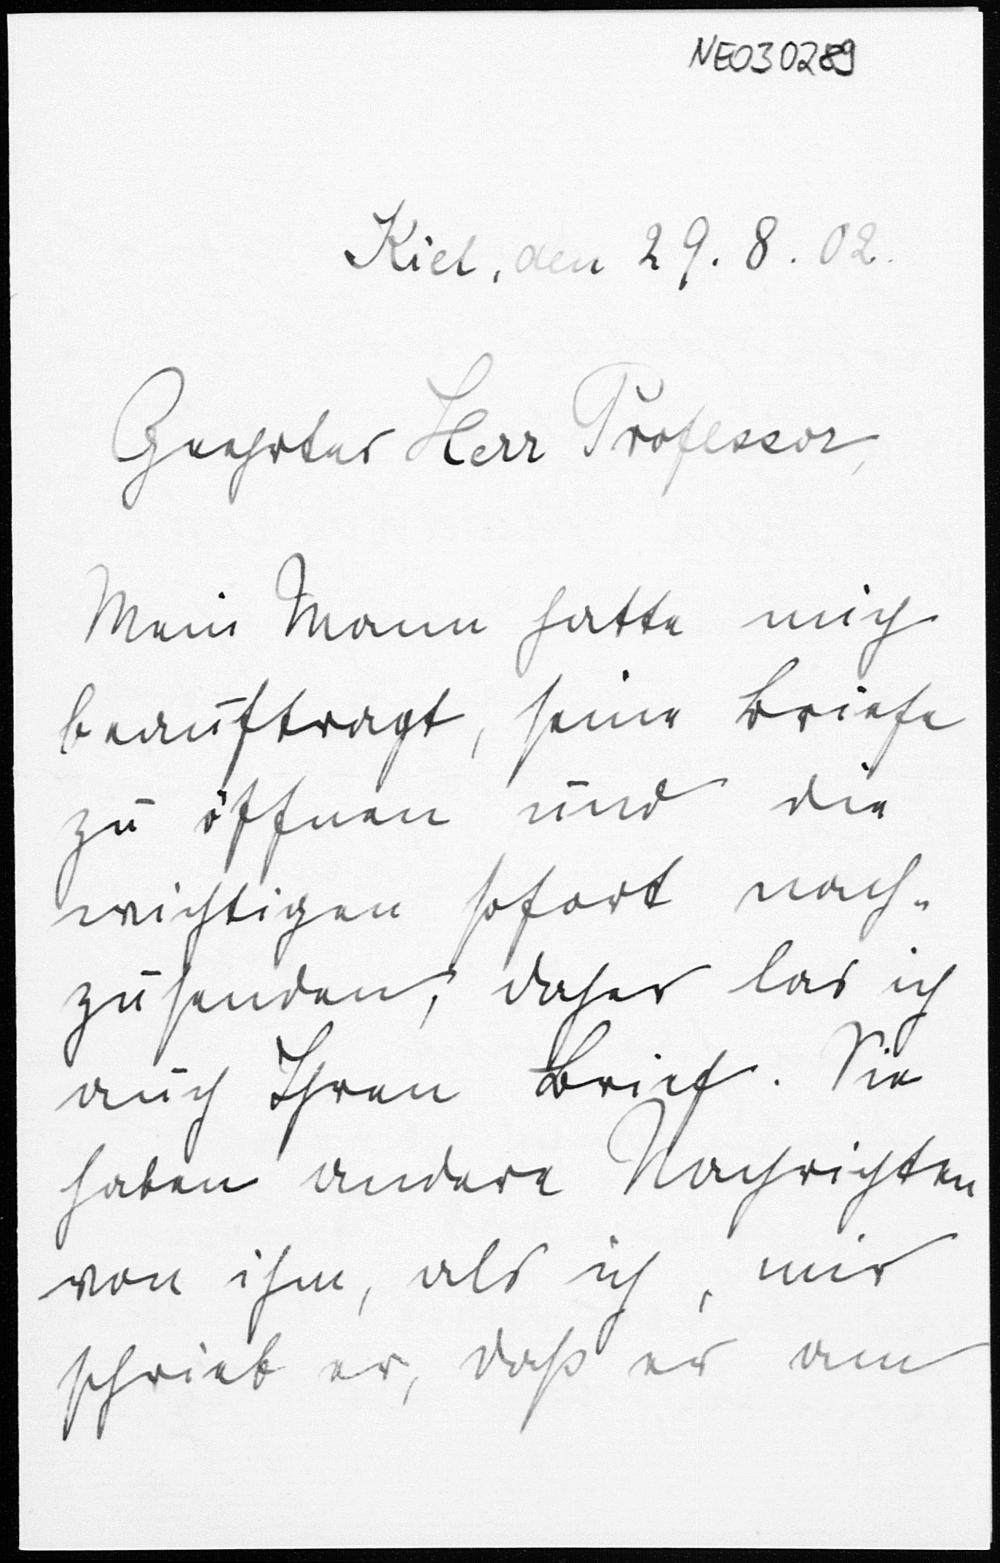 NE030289
Kiel, den 29. 8. 02.
Geehrter Herr Professor,
Mein Mann hatte mich
beauftragt, seine Briefe
zu öffnen und die
wichtigen sofort nach-
zusenden, daher las ich
auch Ihren Brief. Sie
haben andere Nachrichten
von ihm, als ich, mir
schrieb er, daß er am